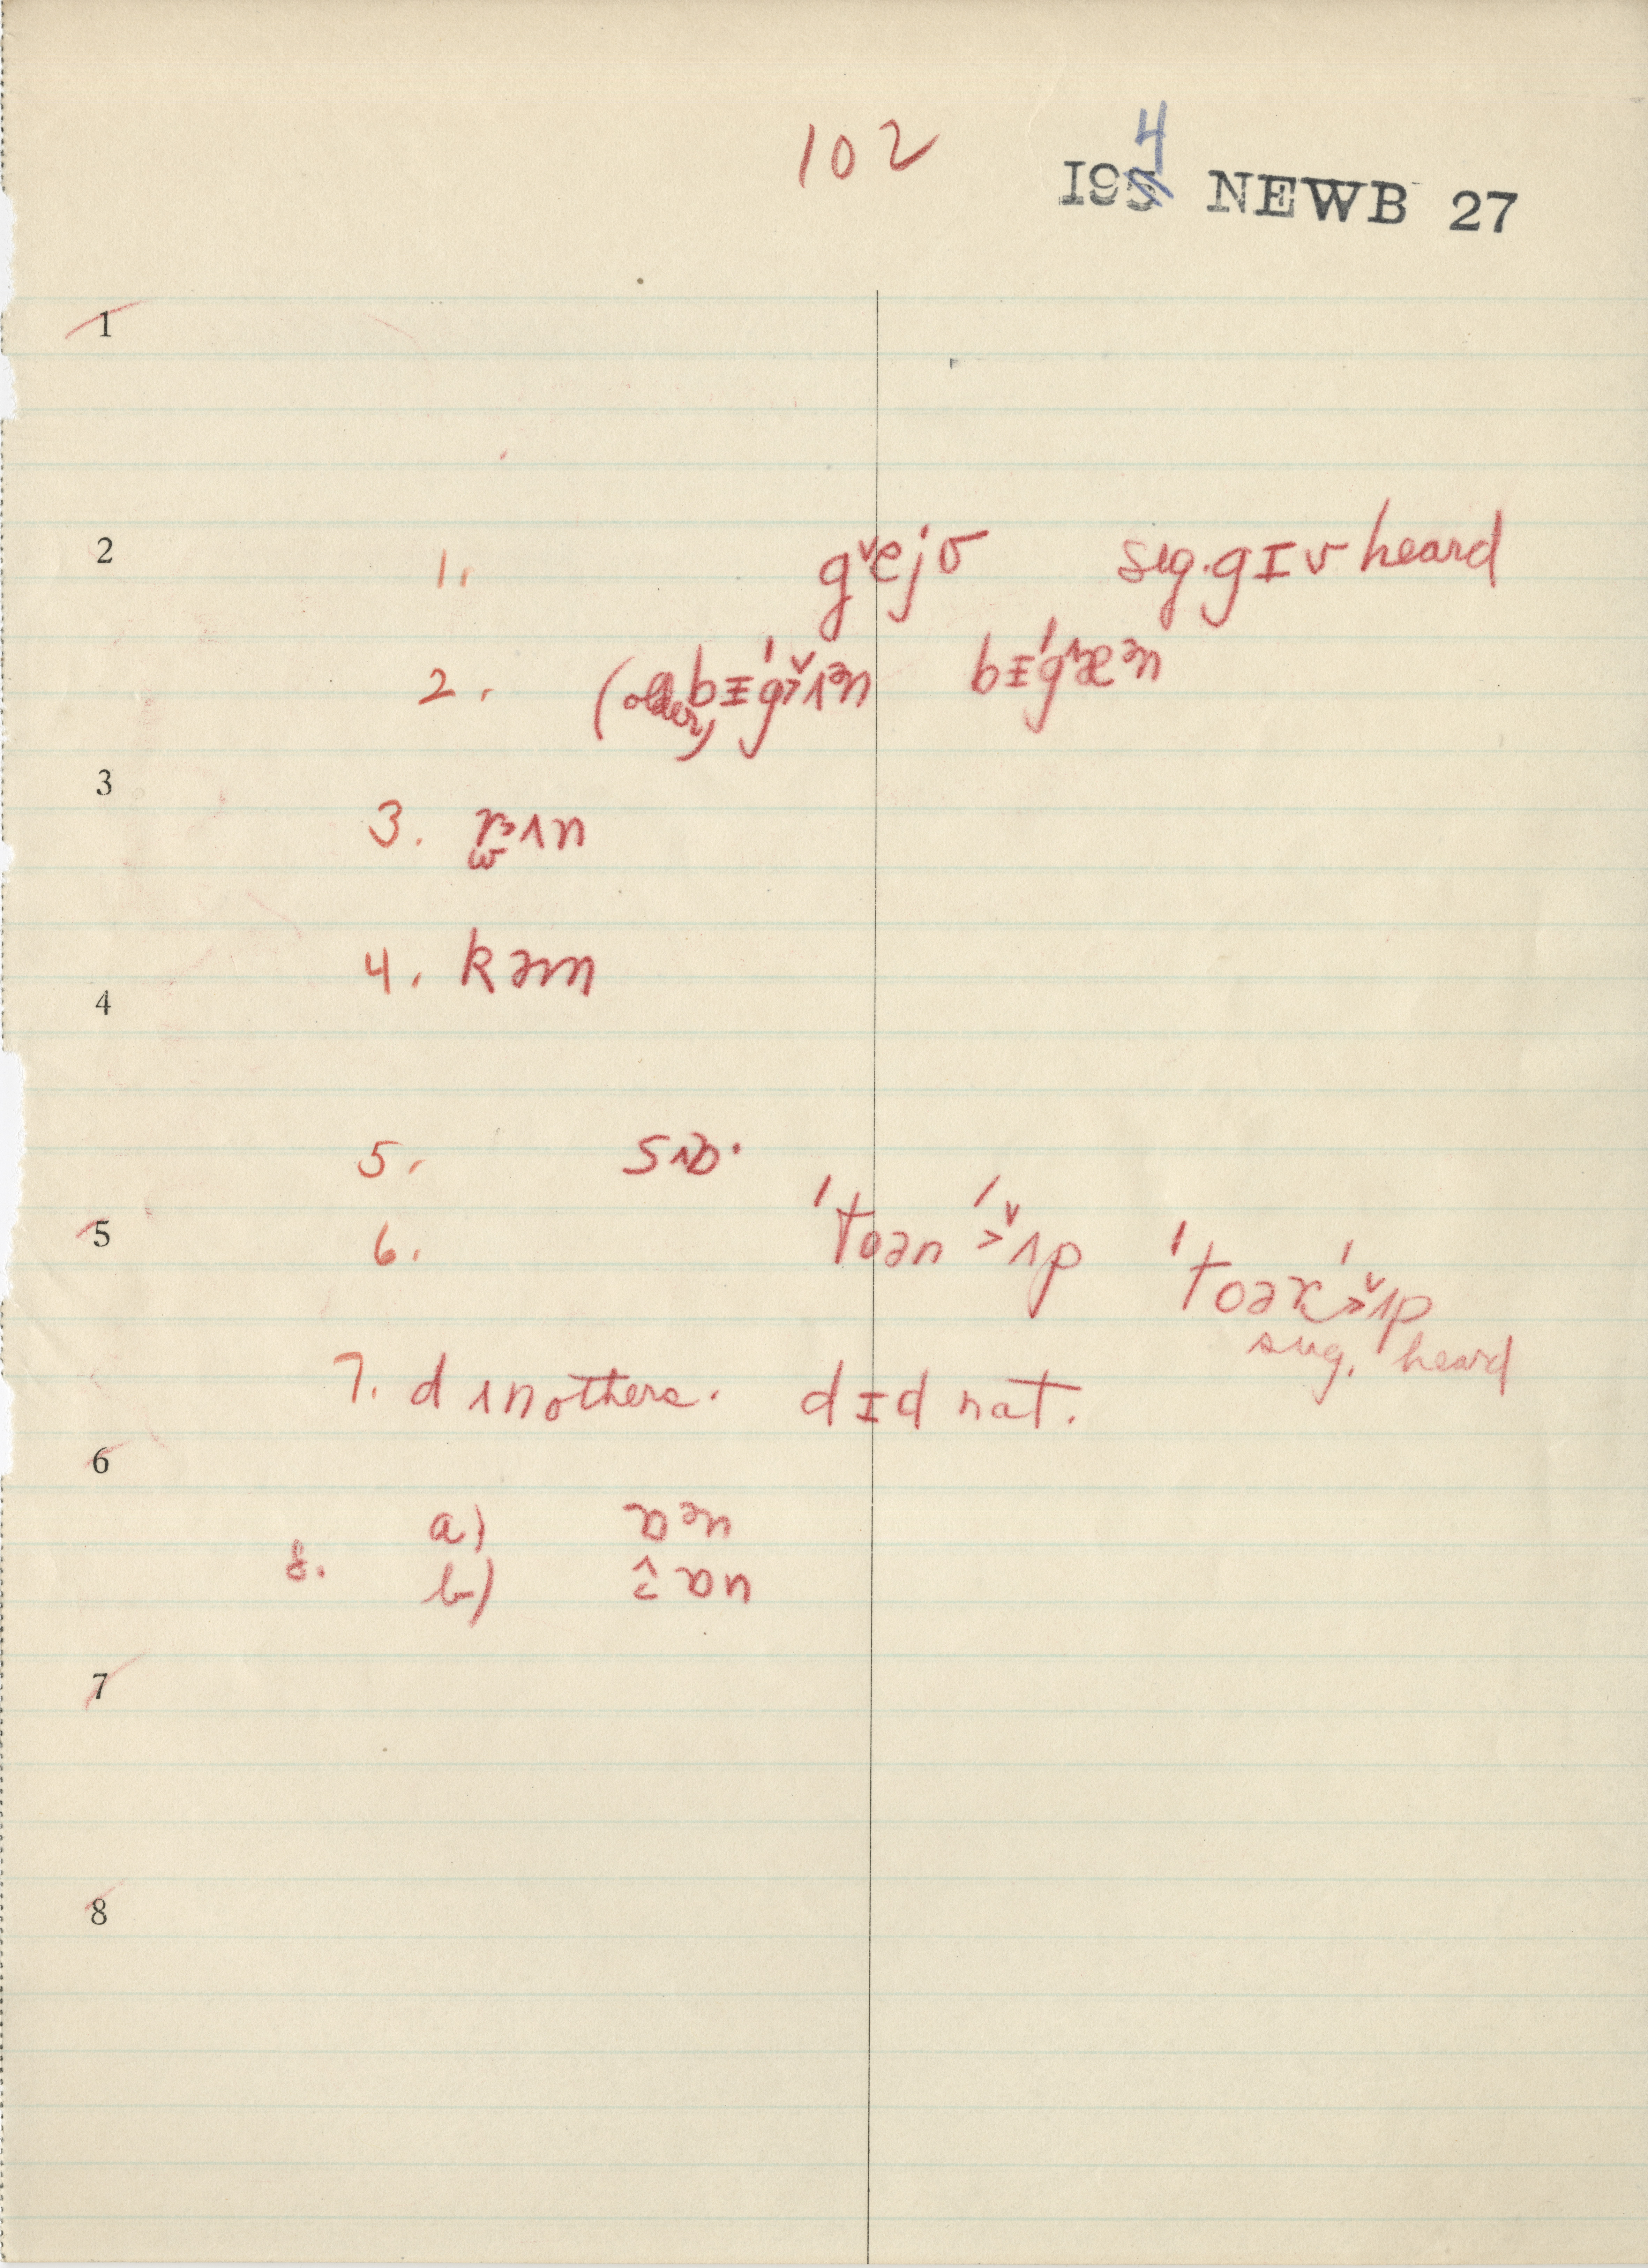 102
4
195 NEWB 27
1
2 1. gˇejʊ sug. gɪv heard
2. (older) bɪ'gˇʌən bɪ'gˆæən
3
3. rʌn
4. kəm
4
5. sɒ·
5 6. 'toən'ʌp 'toəx'ʌp
sug. heard
7. dʌn others. dɪd nat.
6
8. a) ɒən
b) ɒn
7
8